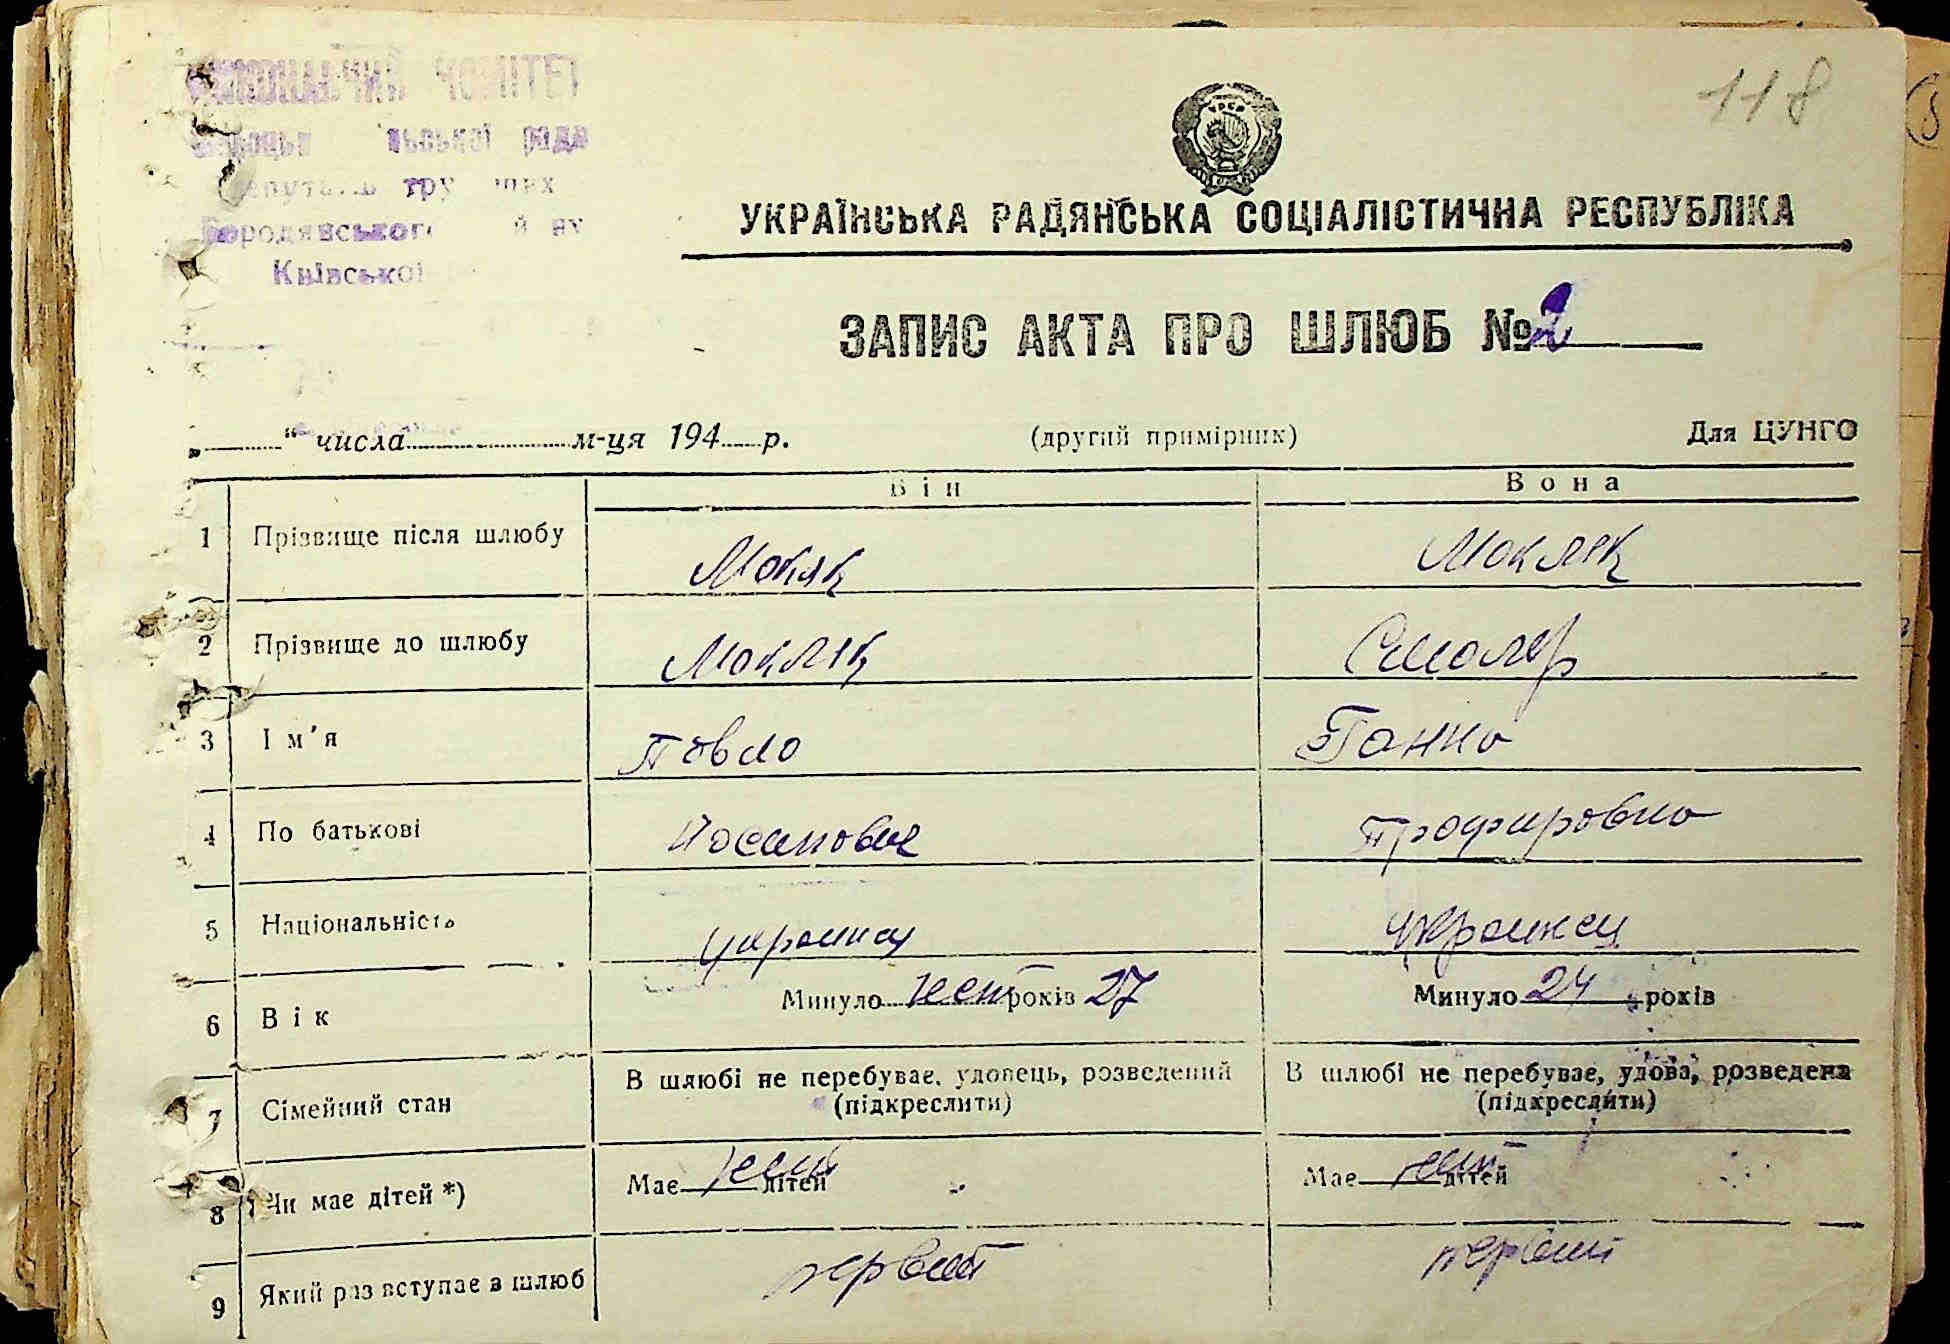 ВИКОНАВЧИЙ КОМІТЕТ
ради
депутатів трудящих
Бородянського
Київської
118
УРСР
УКРАЇНСЬКА РАДЯНСЬКА СОЦІАЛІСТИЧНА РЕСПУБЛІКА
ЗАПИС АКТА ПРО ШЛЮБ № 2
„ “ числа м-ця 194 р. (другий примірник) Для ЦУНГО
Він Вона
1 Прізвище після шлюбу Мокляк Мокляк
2 Прізвище до шлюбу Мокляк Смоляр
3 Ім'я Павло Ганна
4 По батькові Йосипович
5 Національність українец українец
6 Вік Минуло років 27 Минуло 24 років
7 Сімейний стан В шлюбі не перебуває, удовець, розведений (підкреслити) В шлюбі не перебуває, удова, розведена (підкреслити)
8 Чи має дітей *) Має нет дітей Має нет дітей
9 Який раз вступає в шлюб первий первий